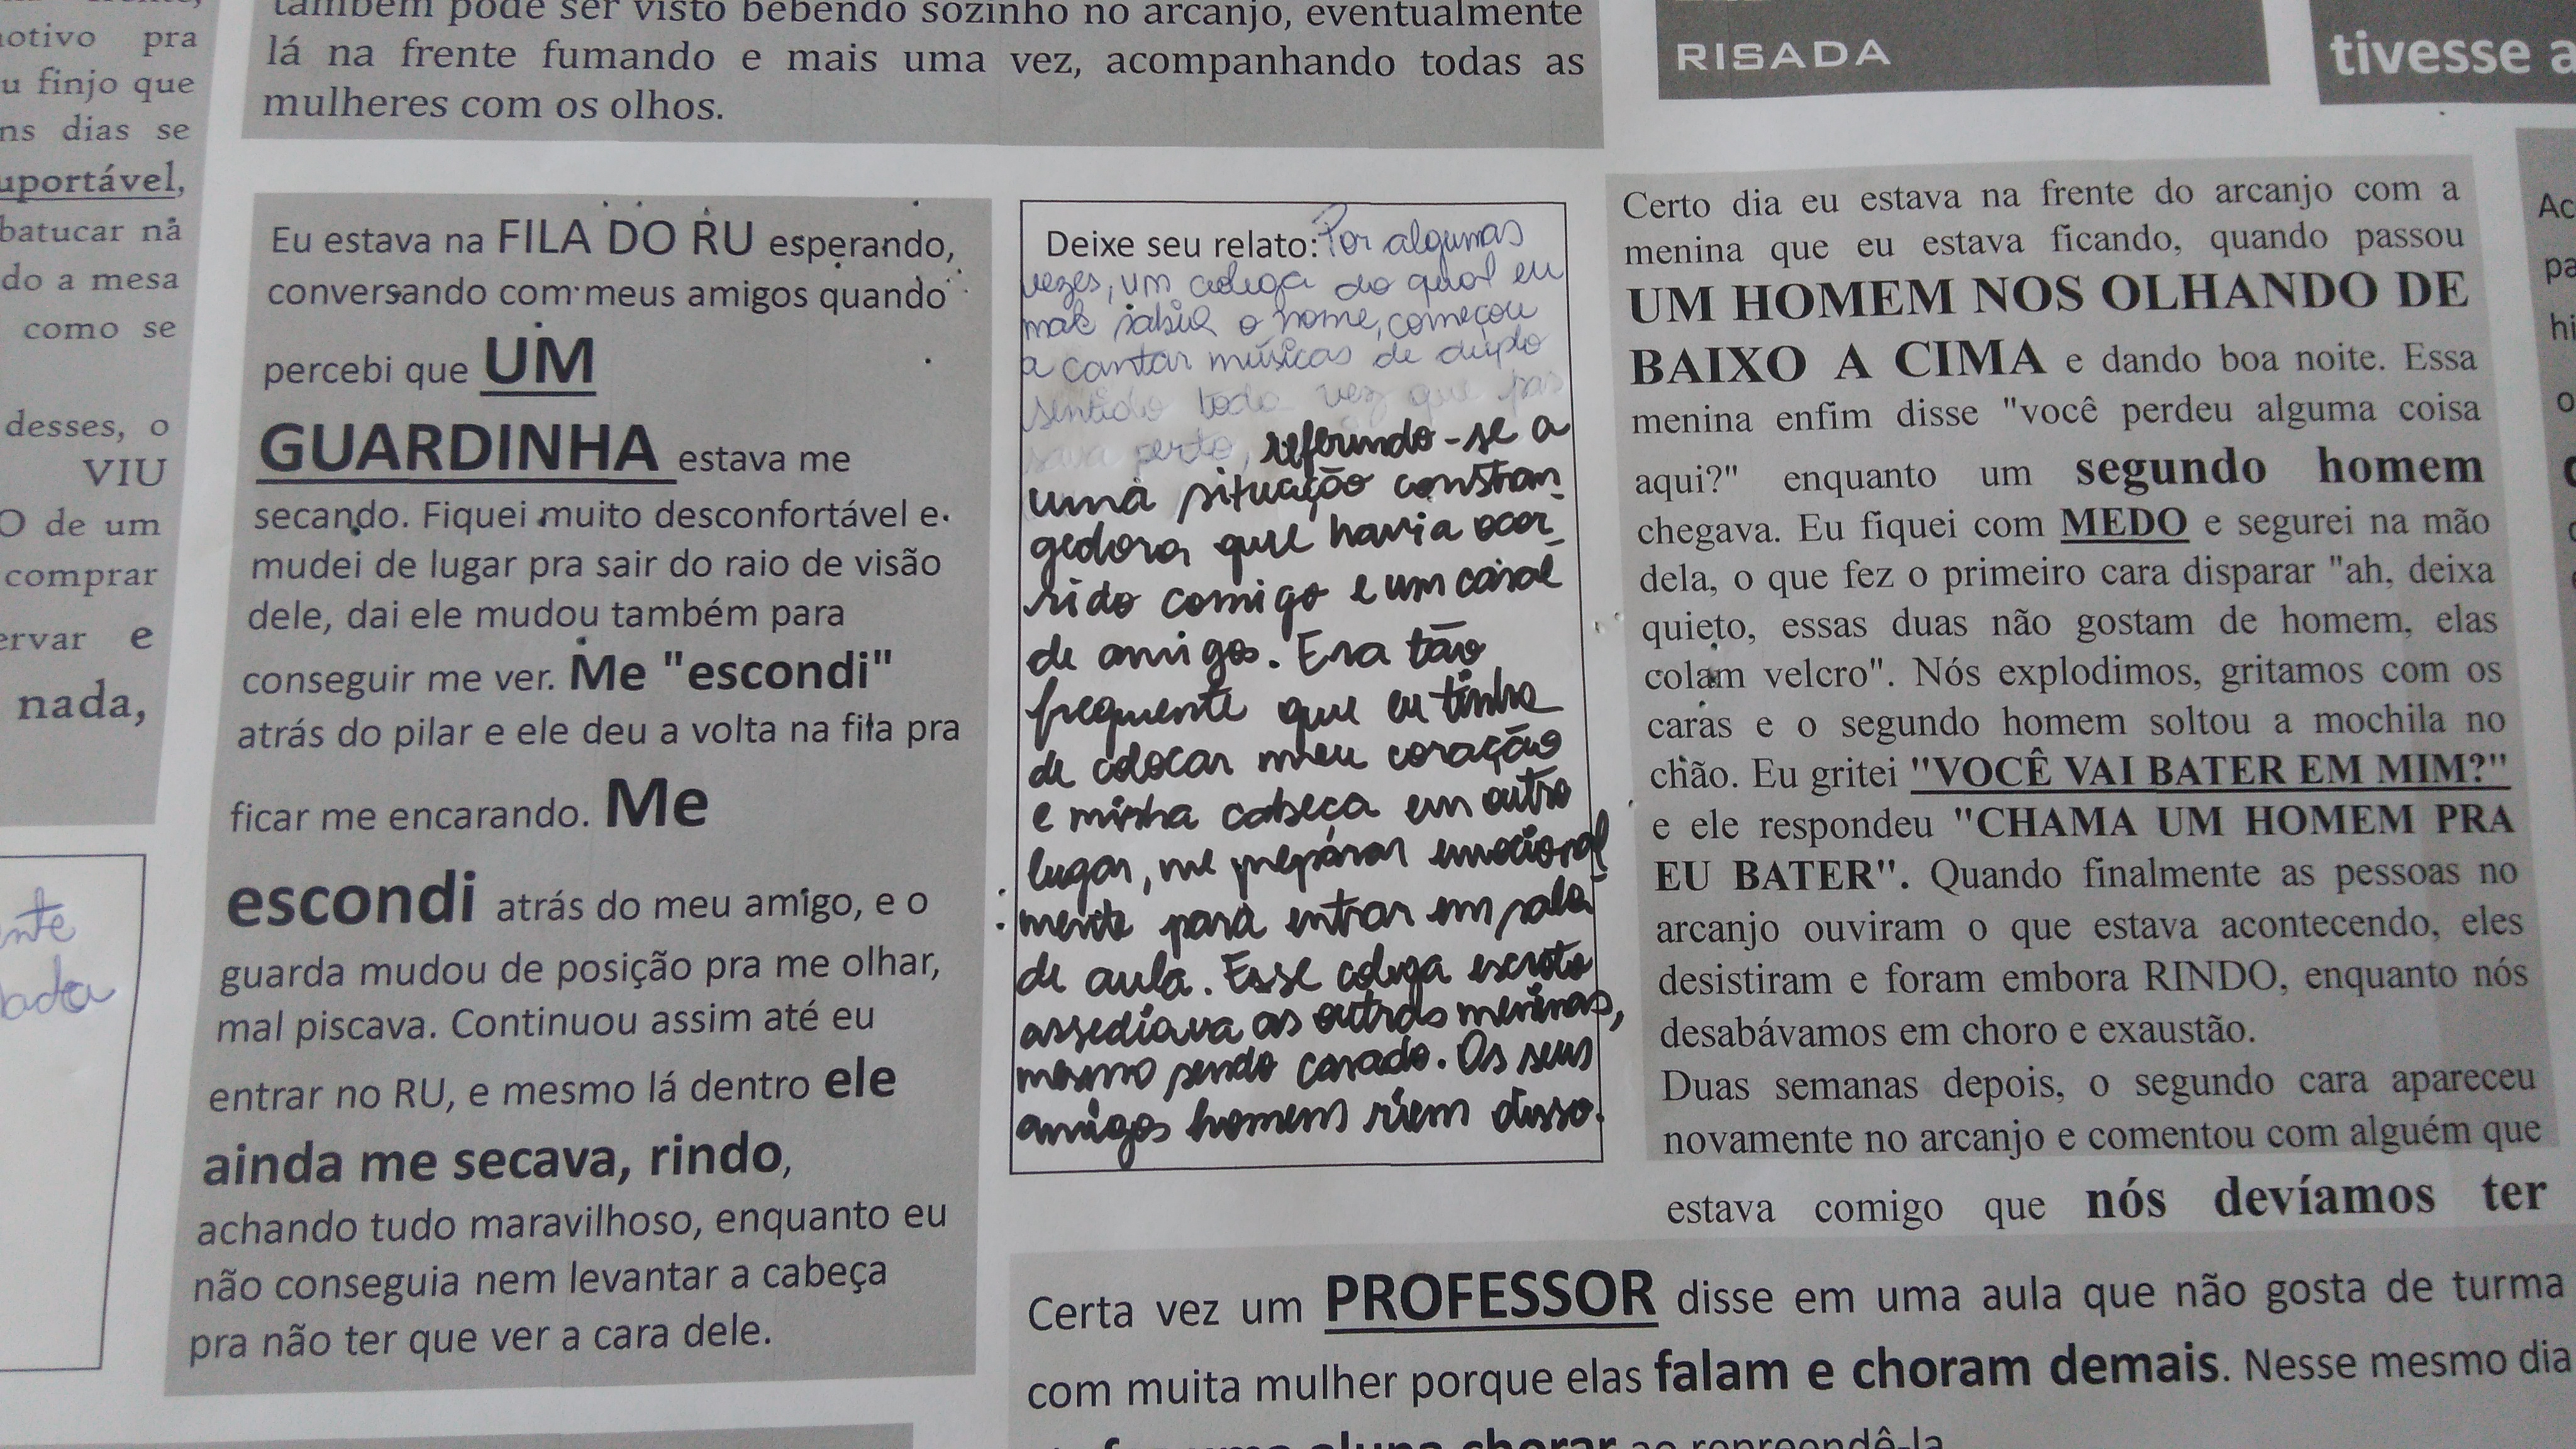 também pode ser visto bebendo sozinho no arcanjo, eventualmente
lá na frente fumando e mais uma vez, acompanhando todas as
mulheres com os olhos.
RISADA
tivesse a
pra
u finjo que
ns dias se
uportável,
batucar na
do a mesa
como se
desses, o
VIU
O de um
comprar
ervar e
nada,
nte
Eu estava na FILA DO RU esperando,
conversando com meus amigos quando
percebi que UM
GUARDINHA estava me
secando. Fiquei muito desconfortável e
mudei de lugar pra sair do raio de visão
dele, dai ele mudou também para
conseguir me ver. Me "escondi"
atrás do pilar e ele deu a volta na fila pra
ficar me encarando. Me
escondi atrás do meu amigo, e o
guarda mudou de posição pra me olhar,
mal piscava. Continuou assim até eu
entrar no RU, e mesmo lá dentro ele
ainda me secava, rindo,
achando tudo maravilhoso, enquanto eu
não conseguia nem levantar a cabeça
pra não ter que ver a cara dele.
Deixe seu relato: Por algumas
vezes, um colega do qual eu
mal sabia o nome, começou
a cantar músicas de duplo
sentido toda vez que pas
sava perto, referindo-se a
uma situação constran-
gedora que havia ocor-
rido comigo e um casal
de amigos. Era tão
frequente que eu tinha
de colocar meu coração
e minha cabeça em outro
lugar, me preparar emocional
mente para entrar em sala
de aula. Esse colega escroto
assediava as outras meninas,
mesmo sendo casado. Os seus
amigos homens riem disso.
Certo dia eu estava na frente do arcanjo com a
menina que eu estava ficando, quando passou
UM HOMEM NOS OLHANDO DE
BAIXO A CIMA e dando boa noite. Essa
menina enfim disse "você perdeu alguma coisa
aqui?" enquanto um segundo homem
chegava. Eu fiquei com MEDO e segurei na mão
dela, o que fez o primeiro cara disparar "ah, deixa
quieto, essas duas não gostam de homem, elas
colam velcro". Nós explodimos, gritamos com os
caras e o segundo homem soltou a mochila no
chão. Eu gritei "VOCÊ VAI BATER EM MIM?"
e ele respondeu "CHAMA UM HOMEM PRA
EU BATER". Quando finalmente as pessoas no
arcanjo ouviram o que estava acontecendo, eles
desistiram e foram embora RINDO, enquanto nós
desabávamos em choro e exaustão.
Duas semanas depois, o segundo cara apareceu
novamente no arcanjo e comentou com alguém que
estava comigo que nós devíamos ter
Certa vez um PROFESSOR disse em uma aula que não gosta de turma
com muita mulher porque elas falam e choram demais. Nesse mesmo dia
aluna chorar ao repreendê-la